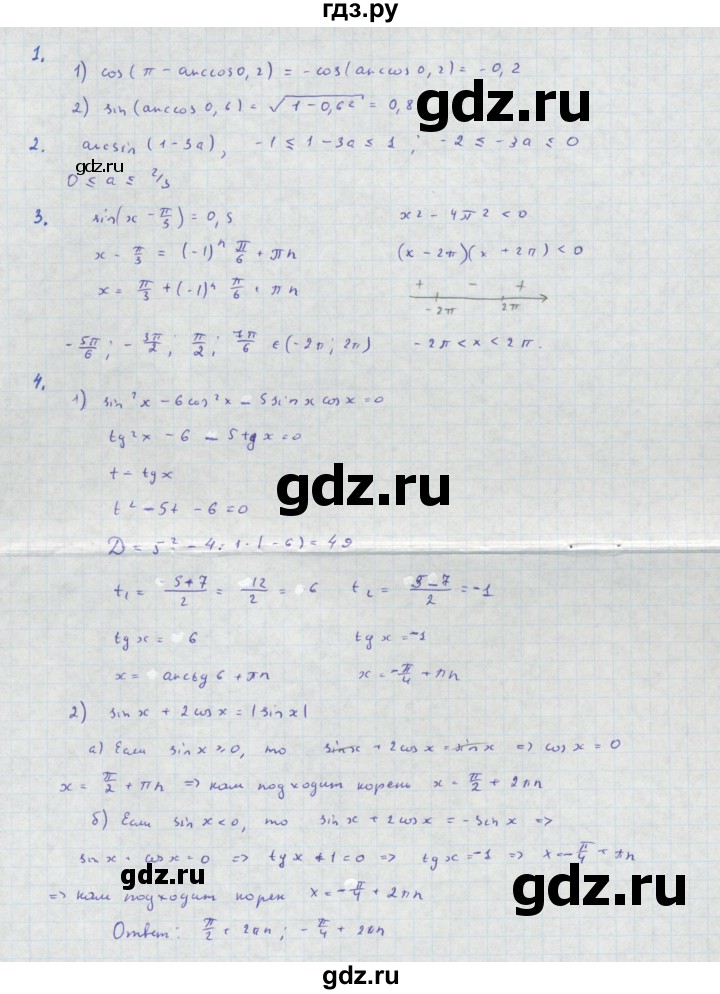 гдз.ру
1.
1) cos(π - arccos 0,2) = -cos(arccos 0,2) = -0,2
2) sin(arccos 0,6) = √1-0,6² = 0,8
gdz.ru
2. arcsin(1-3a), -1 ≤ 1-3a ≤ 1; -2 ≤ -3a ≤ 0
gdz.ru
0 ≤ a ≤ 2/3
3. sin(x - π/3) = 0,5 x² - 4π² < 0
x - π/3 = (-1)ⁿ π/6 + πn (x - 2π)(x + 2π) < 0
x = π/3 + (-1)ⁿ π/6 + πn + - +
-2π 2π
-5π/6; -3π/2; π/2; 7π/6 ∈ (-2π; 2π) -2π < x < 2π.
4.
1) sin²x - 6cos²x - 5sinx cosx = 0
tg²x - 6 - 5tgx = 0
t = tgx
gdz.ru
t² - 5t - 6 = 0
D = 5² - 4·1·(-6) = 49
t₁ = 5+7/2 = 12/2 = 6 t₂ = 5-7/2 = -1
tgx = 6 tgx = -1
x = arctg 6 + πn x = -π/4 + πn
gdz.ru
2) sinx + 2cosx = |sinx|
а) Если sinx ≥ 0, то sinx + 2cosx = sinx => cosx = 0
x = π/2 + πn => нам подходит корень x = π/2 + 2πn
б) Если sinx < 0, то sinx + 2cosx = -sinx =>
sinx + cosx = 0 => tgx + 1 = 0 => tgx = -1 => x = -π/4 + πn
gdz.ru
=> нам подходит корен x = -π/4 + 2πn
Ответ: π/2 + 2πn; -π/4 + 2πn
gdz.ru
gdz.ru